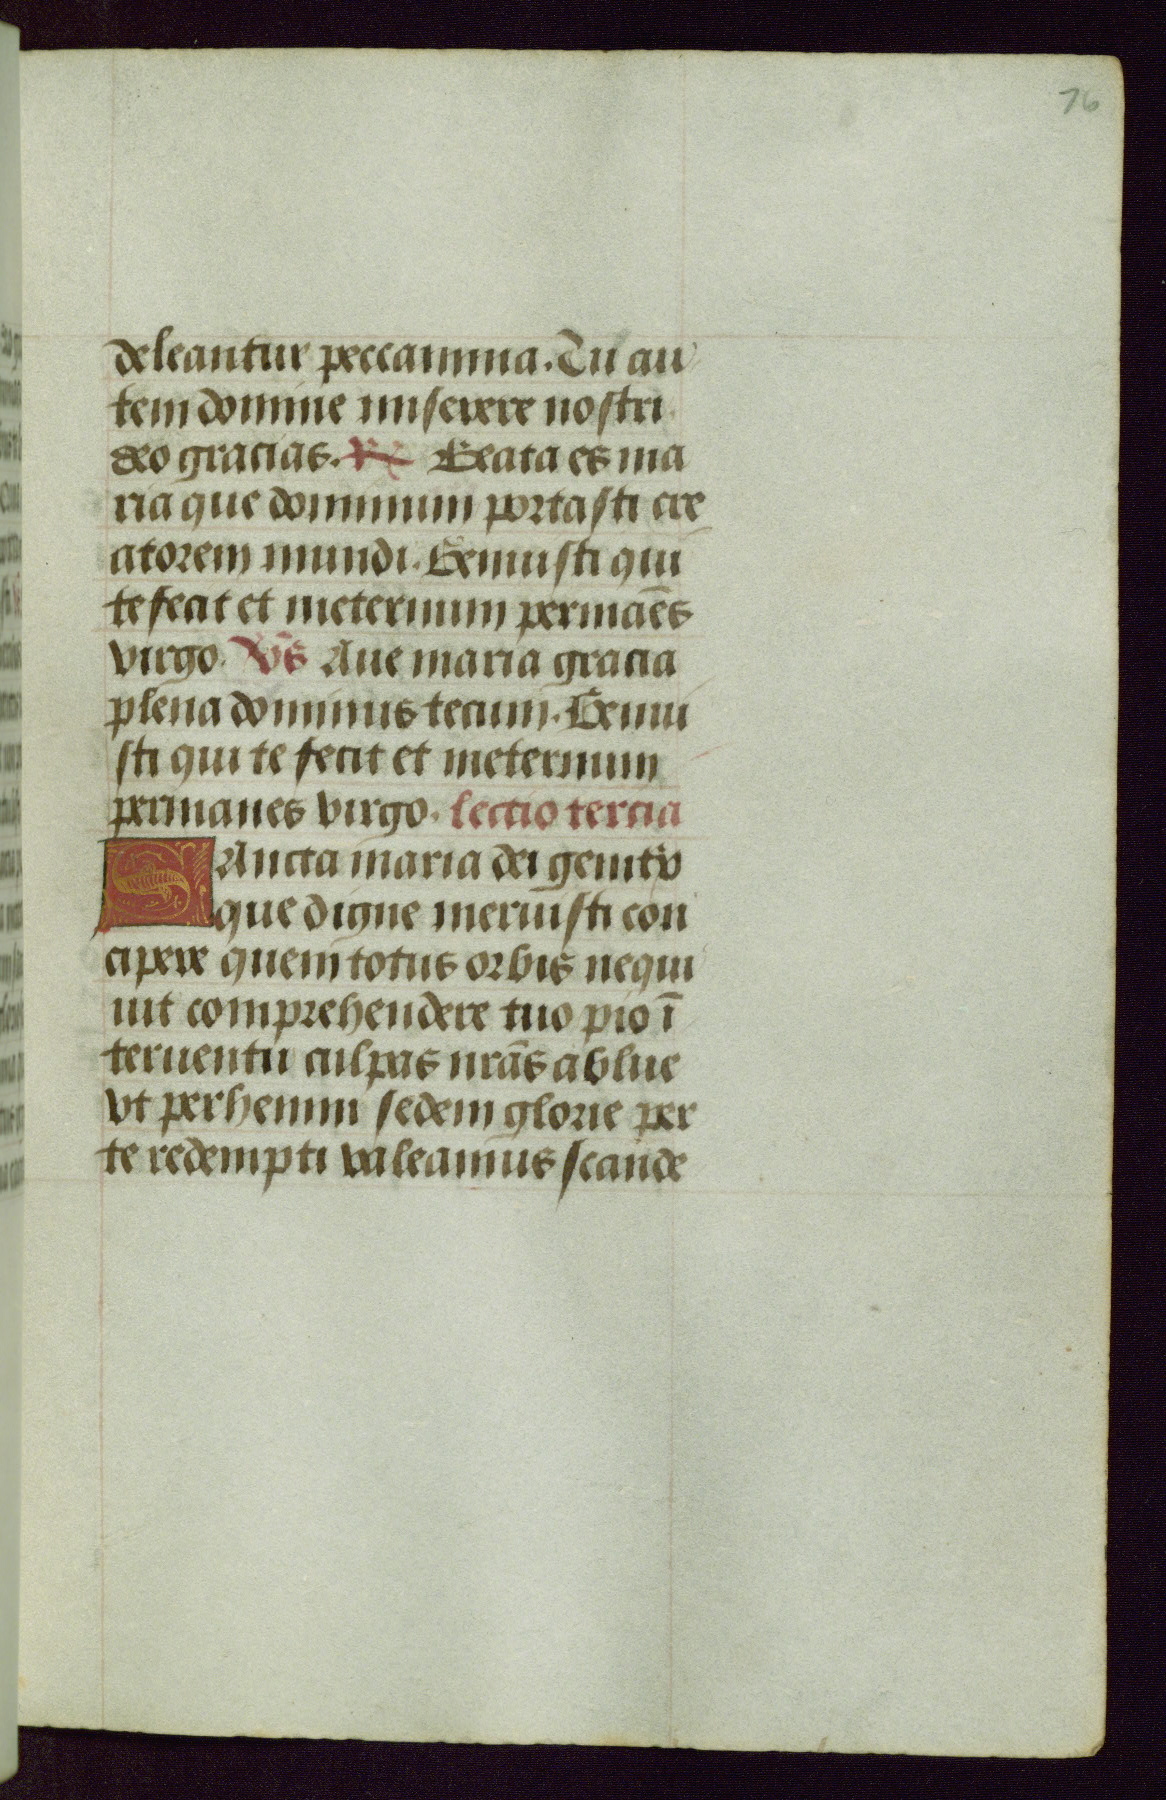 76
deleantur peccamina. Tu au
tem domine miserere nostri
deo gracias. R Beata es ma
ria que dominum portasti cre
atorem mundi. Genuisti qui
te fecit et ineternum permanẽs
virgo. Vs Aue maria gracia
plena dominus tecum. Genui
sti qui te fecit et ineternum
permanes virgo. lectio tercia
SAncta maria dei genitͥx
que digne meruisti con
cipere quem totus orbis nequi
uit comprehendere tuo pio ĩ
teruentu culpas nrãs ablue
vt perhenni sedem glorie per
te redempti valeamus scande